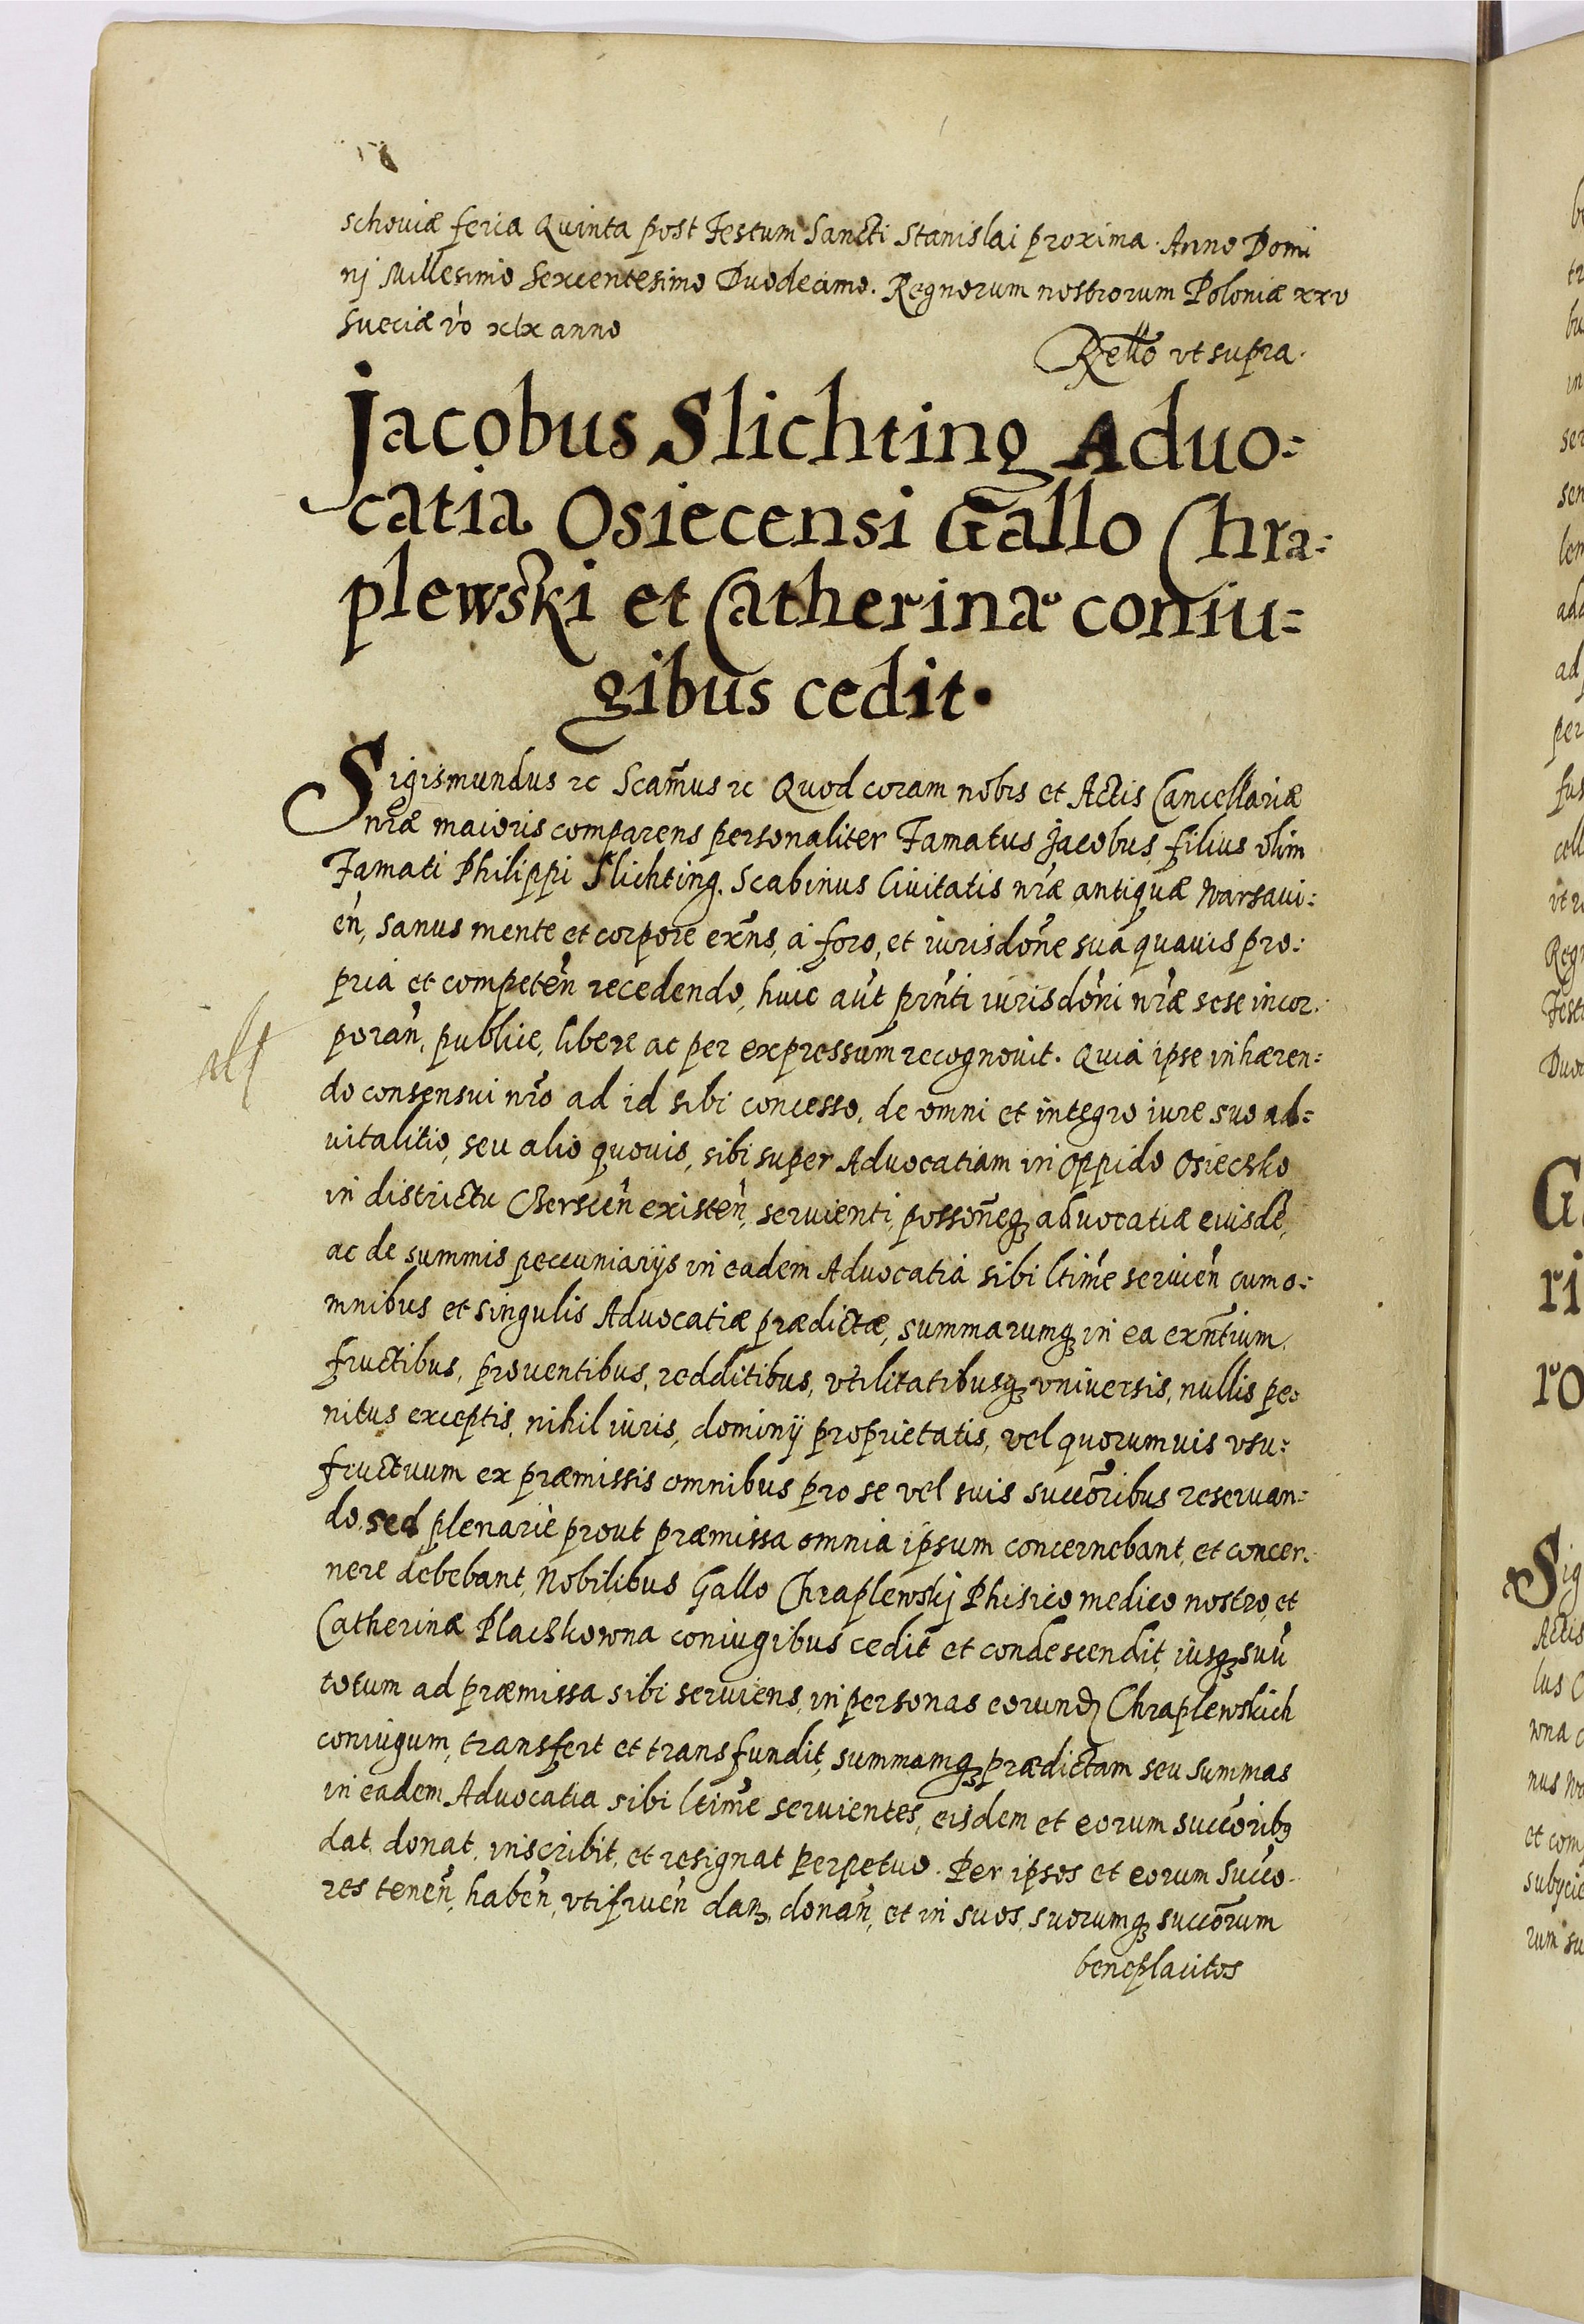 schoviæ feria Quinta post Festum Sancti Stanislai proxima. Anno Domi
nj Millesimo Sexcentesimo Duodecimo. Regnorum nostrorum Poloniæ xxv
Sueciæ v̄o xix anno
Rell̄o vt supra.
Jacobus Slichting Aduo=
catia Osiecensi Gallo Chra=
plewski et Catherinæ coniu=
gibus cedit.
Sigismundus ꝛc Scam̄us ꝛc Quod coram nobis et Actis Cancellariæ
nr̄æ maioris comparens personaliter Famatus Jacobus filius olim
Famati Philippi Slichting. Scabinus Ciuitatis nr̄æ antiquæ Warsaui=
en̄, sanus mente et corpore exn̄s, à foro, et iurisdon̄e sua quauis pro=
pria et competen̄ recedendo, huic aūt prn̄ti iurisdon̄i nr̄æ sese incor=
poran̄, publice, libere ac per expressum recognouit. Quià ipse inhæren=
do consensui nr̄o ad id sibi concesso, de omni et integro iure suo ad=
uitalitio, seu alio quouis, sibi super Aduocatiam in oppido Osieczko
in districtu Czerscen̄ existen̄, seruienti, posson̄eqꝫ aduocatiæ eiusdē,
ac de summis peccuniarijs in eadem Aduocatia sibi ltim̄e seruien̄ cum o=
mnibus et singulis Aduocatiæ prædictæ, summarumqꝫ in ea exn̄tium
fructibus, prouentibus, redditibus, vtilitatibusqꝫ vniuersis, nullis pe=
nitus exceptis, nihil iuris, dominij proprietatis, vel quorumuis vsu=
fructuum ex præmissis omnibus pro se vel suis succ̄oribus reseruan=
do, sed plenariè prout præmissa omnia ipsum concernebant, et concer=
nere debebant, Nobilibus Gallo Chraplewskj Phisico medico nostro, et
Catherinæ Placzkowna coniugibus cedit et condescendit, iusqꝫ suū
totum ad præmissa sibi seruiens, in personas eorundꝫ Chraplewskich
coniugum, transfert et transfundit, summamqꝫ prædictam seu summas
in eadem Aduocatia sibi ltim̄e seruientes, eisdem et eorum succ̄oribꝯ
dat, donat, inscribit, et resignat perpetuo. Per ipsos et eorum succ̄o=
res tenen̄, haben̄, vtifruen̄ dan̄, donan̄, et in suos, suorumqꝫ succ̄orum
beneplacitos